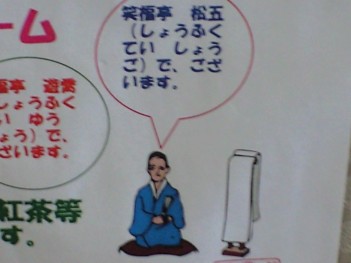 ーム
笑福亭 松五
（しょうふく
てい しょう
ご）で、ござ
います。
福亭 遊喬
しょうふく
い ゆう
ょう）で、
ざいます。
紅茶等
す。